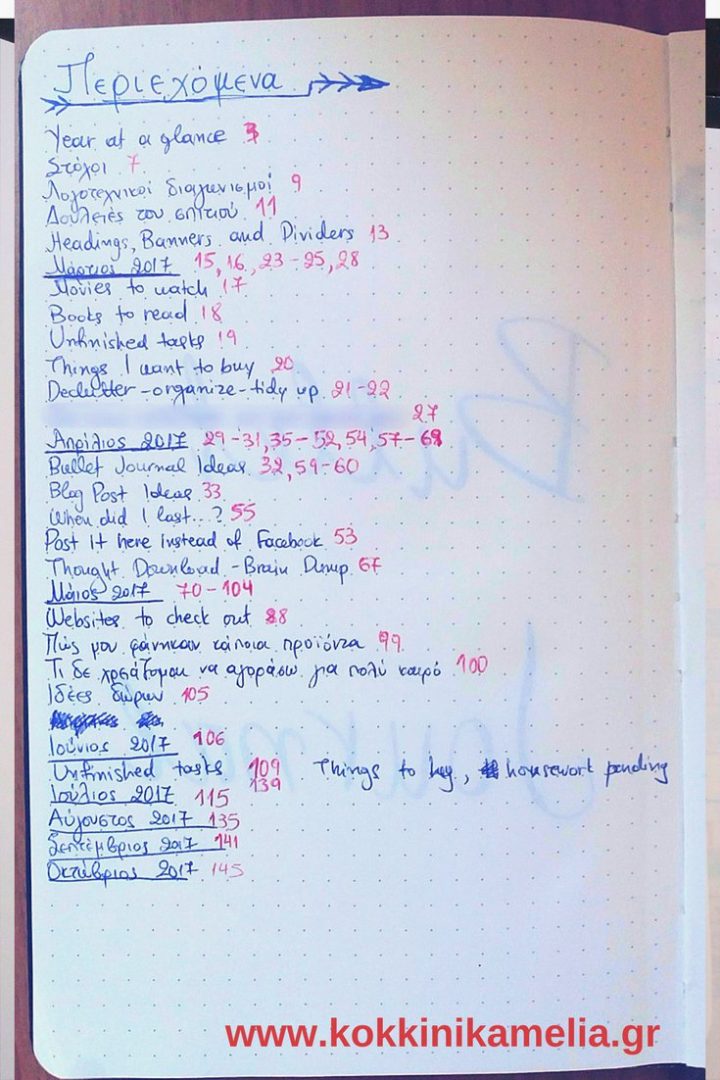 Περιεχόμενα
Year at a glance 3
Στόχοι 7
Λογοτεχνικοί διαγωνισμοί 9
Δουλειές του σπιτιού 11
Headings, Banners and Dividers 13
Μάρτιος 2017 15, 16, 23-25, 28
Movies to watch 17
Books to read 18
Unfinished tasks 19
Things I want to buy 20
Declutter-organize-tidy up 21-22
27
Απρίλιος 2017 29-31, 35-52, 54, 57-69
Bullet Journal Ideas 32, 59-60
Blog Post Ideas 33
When did I last...? 55
Post it here instead of Facebook 53
Thought Download - Brain Dump 67
Μάιος 2017 70-104
Websites to check out 88
Πώς μου φάνηκαν κάποια προϊόντα 99
Τι δε χρειάζομαι να αγοράσω για πολύ καιρό 100
Ιδέες δώρων 105
Ιούνιος 2017 106
Unfinished tasks 109 Things to buy, housework pending
139
Ιούλιος 2017 115
Αύγουστος 2017 135
Σεπτέμβριος 2017 141
Οκτώβριος 2017 145
www.kokkinikamelia.gr